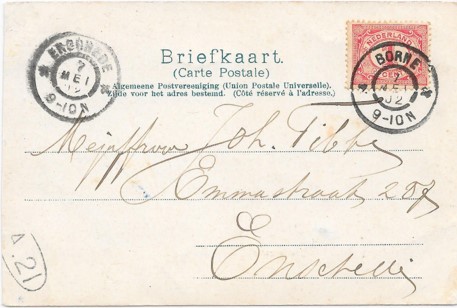 ENSCHEDE
7
MEI
02
9-10N
NEDERLAND
BORNE
7
MEI
02
9-10N
Briefkaart.
(Carte Postale)
Algemeene Postvereeniging (Union Postale Universelle).
Zijde voor het adres bestemd. (Côté réservé à l'adresse.)
Mejuffrouw Joh. Tibbe
Emmastraat
Enschede
A.21